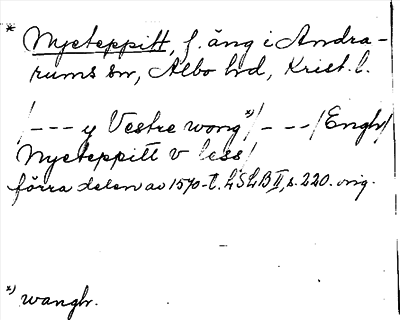 * Nyeteppitt, f. äng i Andra-
rums sn, Albo hd, Krist. l.
/--- y Vestre wong *)/ - - -/Engh/
Nyeteppitt v less/
förra delen av 1570-t. LSLB II, s. 220. orig.
*) wangh.